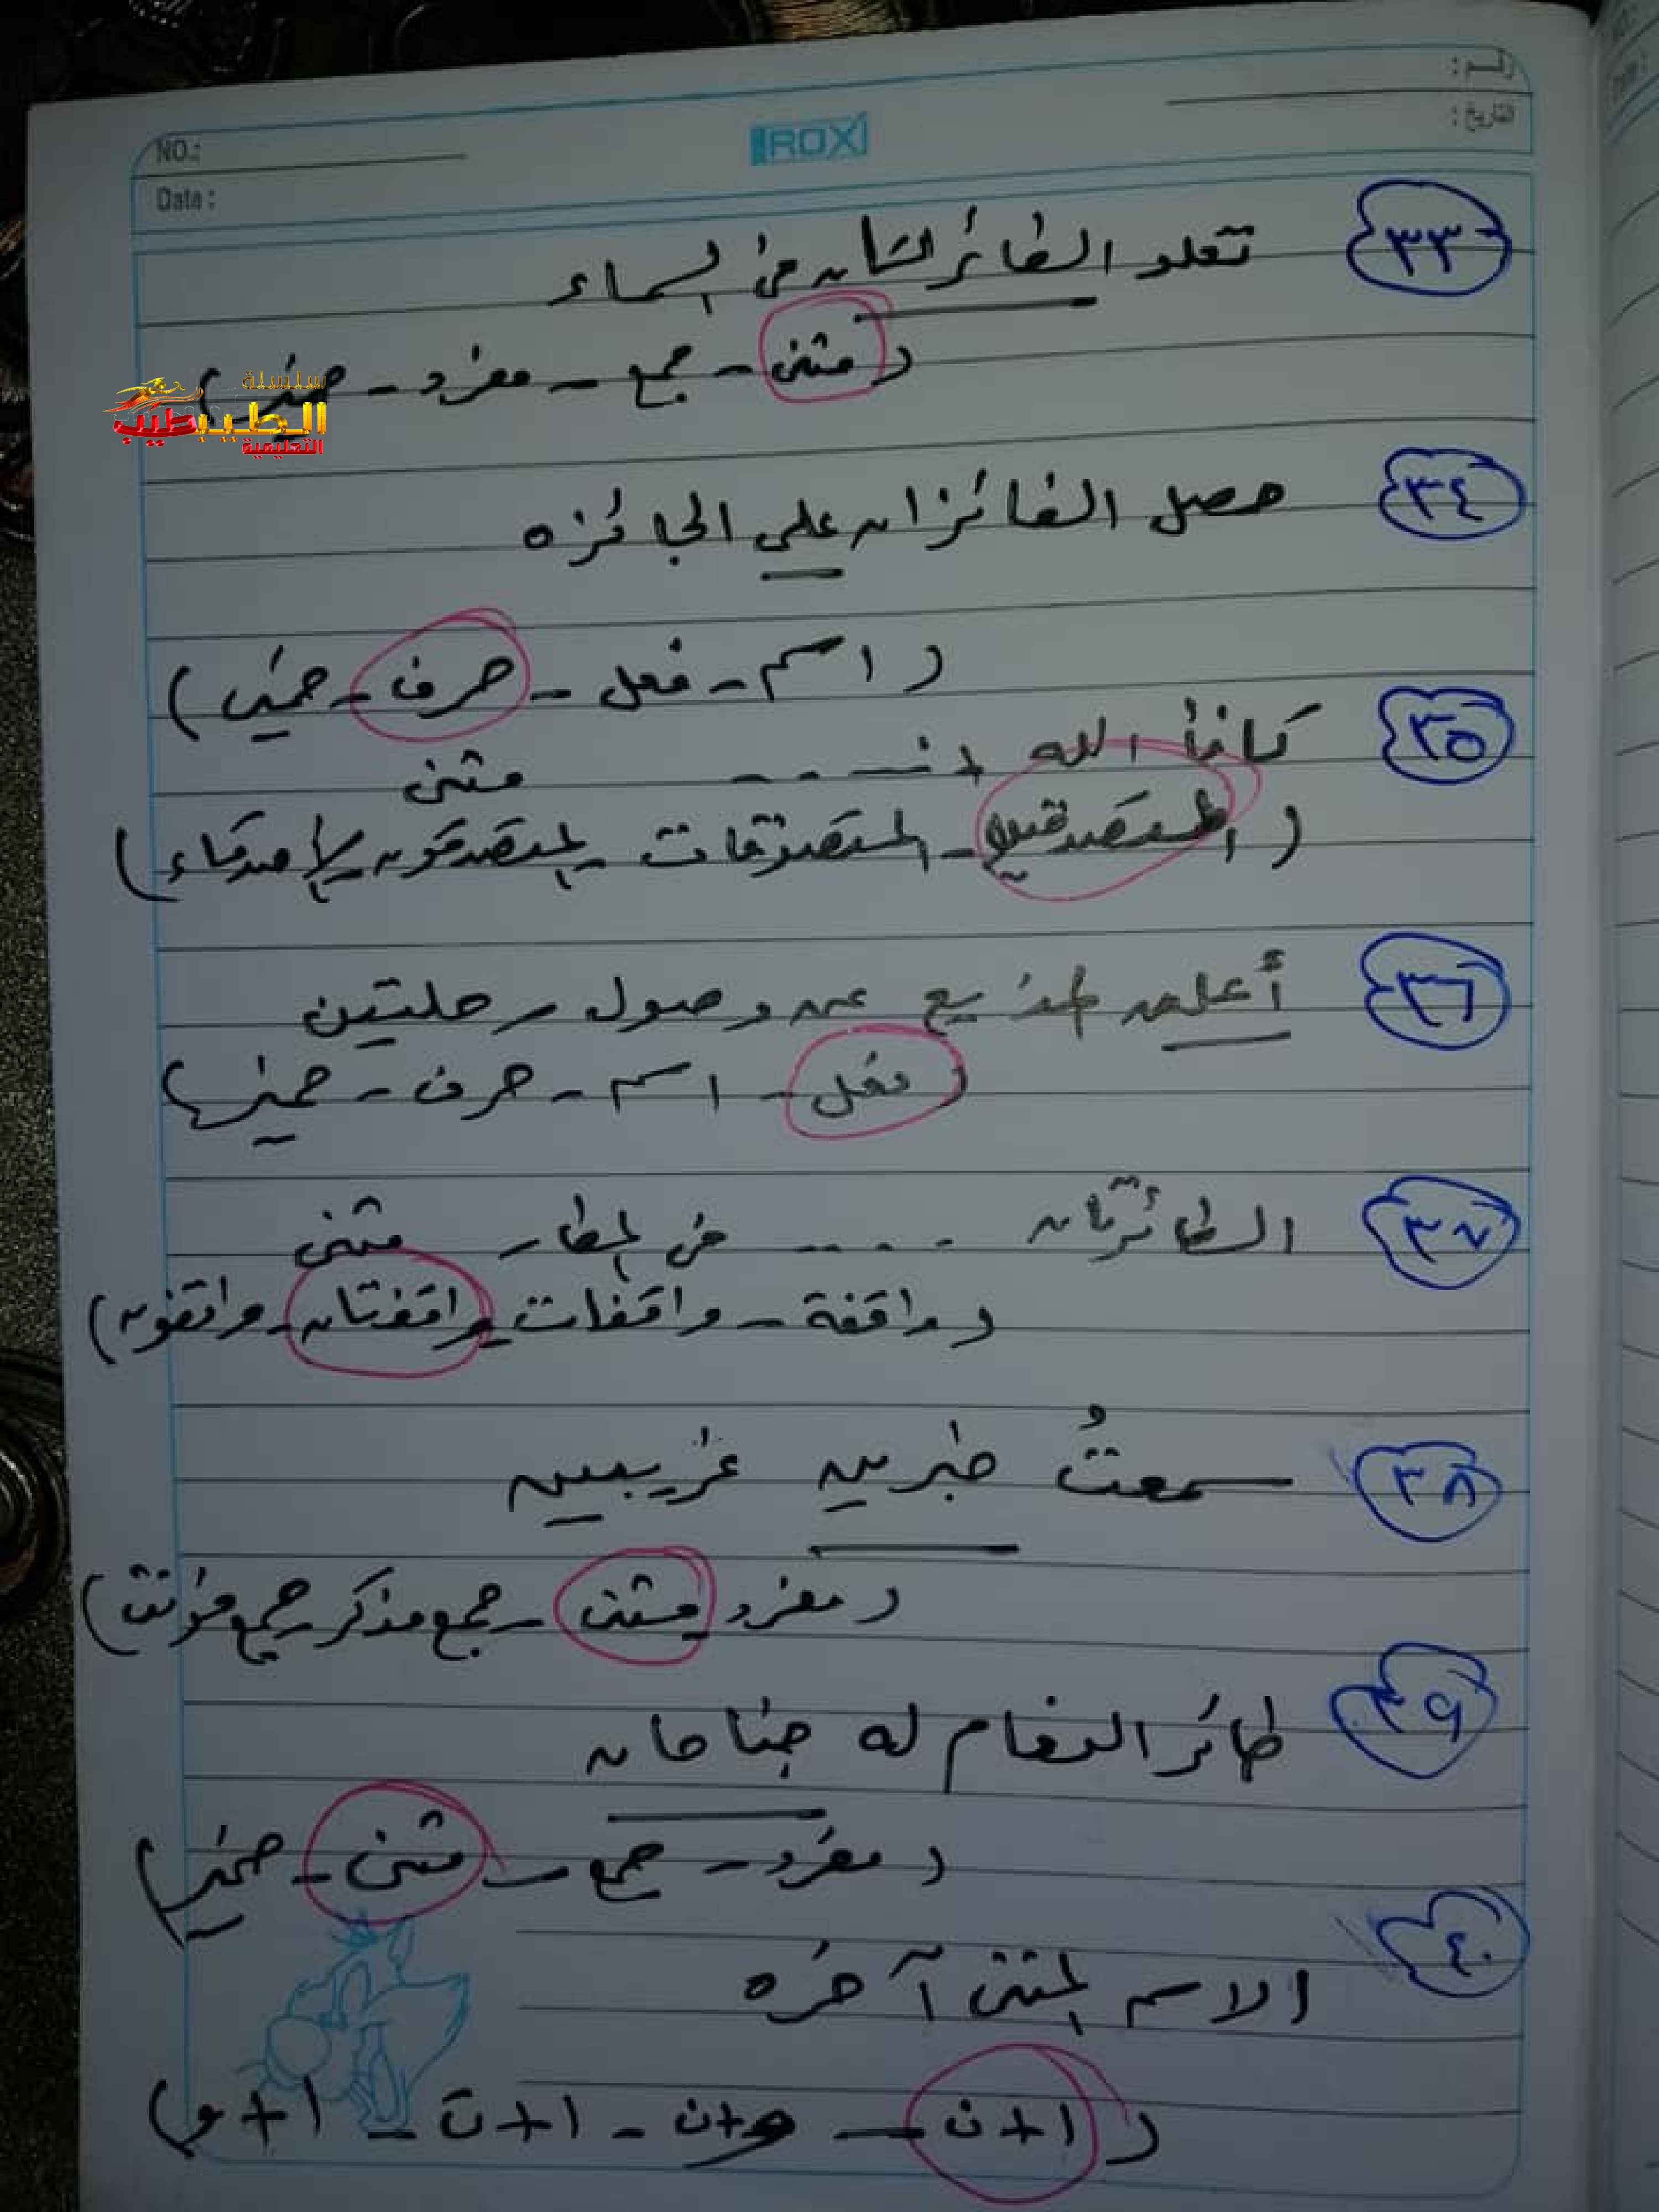 رقم:
التاريخ:
NO.:
Date:
ROX
٣٣ تعلو الطائرتان في السماء
( مثنى - جمع - مفرد - ضمير )
سلسلة
الطيب طيب
التعليمية
٣٤ حصل الفائزان على الجائزه
( اسم - فعل - حرف - ضمير )
٣٥ كافأ الله ... مثنى
( المتصدقين - المتصدقات - المتصدقون - الأصدقاء )
٣٦ أعلن المذيع عن وصول رحلتين
( فعل - اسم - حرف - ضمير )
٣٧ الطائرتان .... في المطار مثنى
( واقفة - واقفات - واقفتان - واقفون )
٣٨ سمعتُ خبرين غريبين
( مفرد - مثنى - جمع مذكر - جمع مؤنث )
٣٩ طائر النعام له جناحان
( مفرد - جمع - مثنى - ضمير )
٤٠ الاسم المثنى آخره
( ا+ن - و+ن - ا+ت - ا+و )